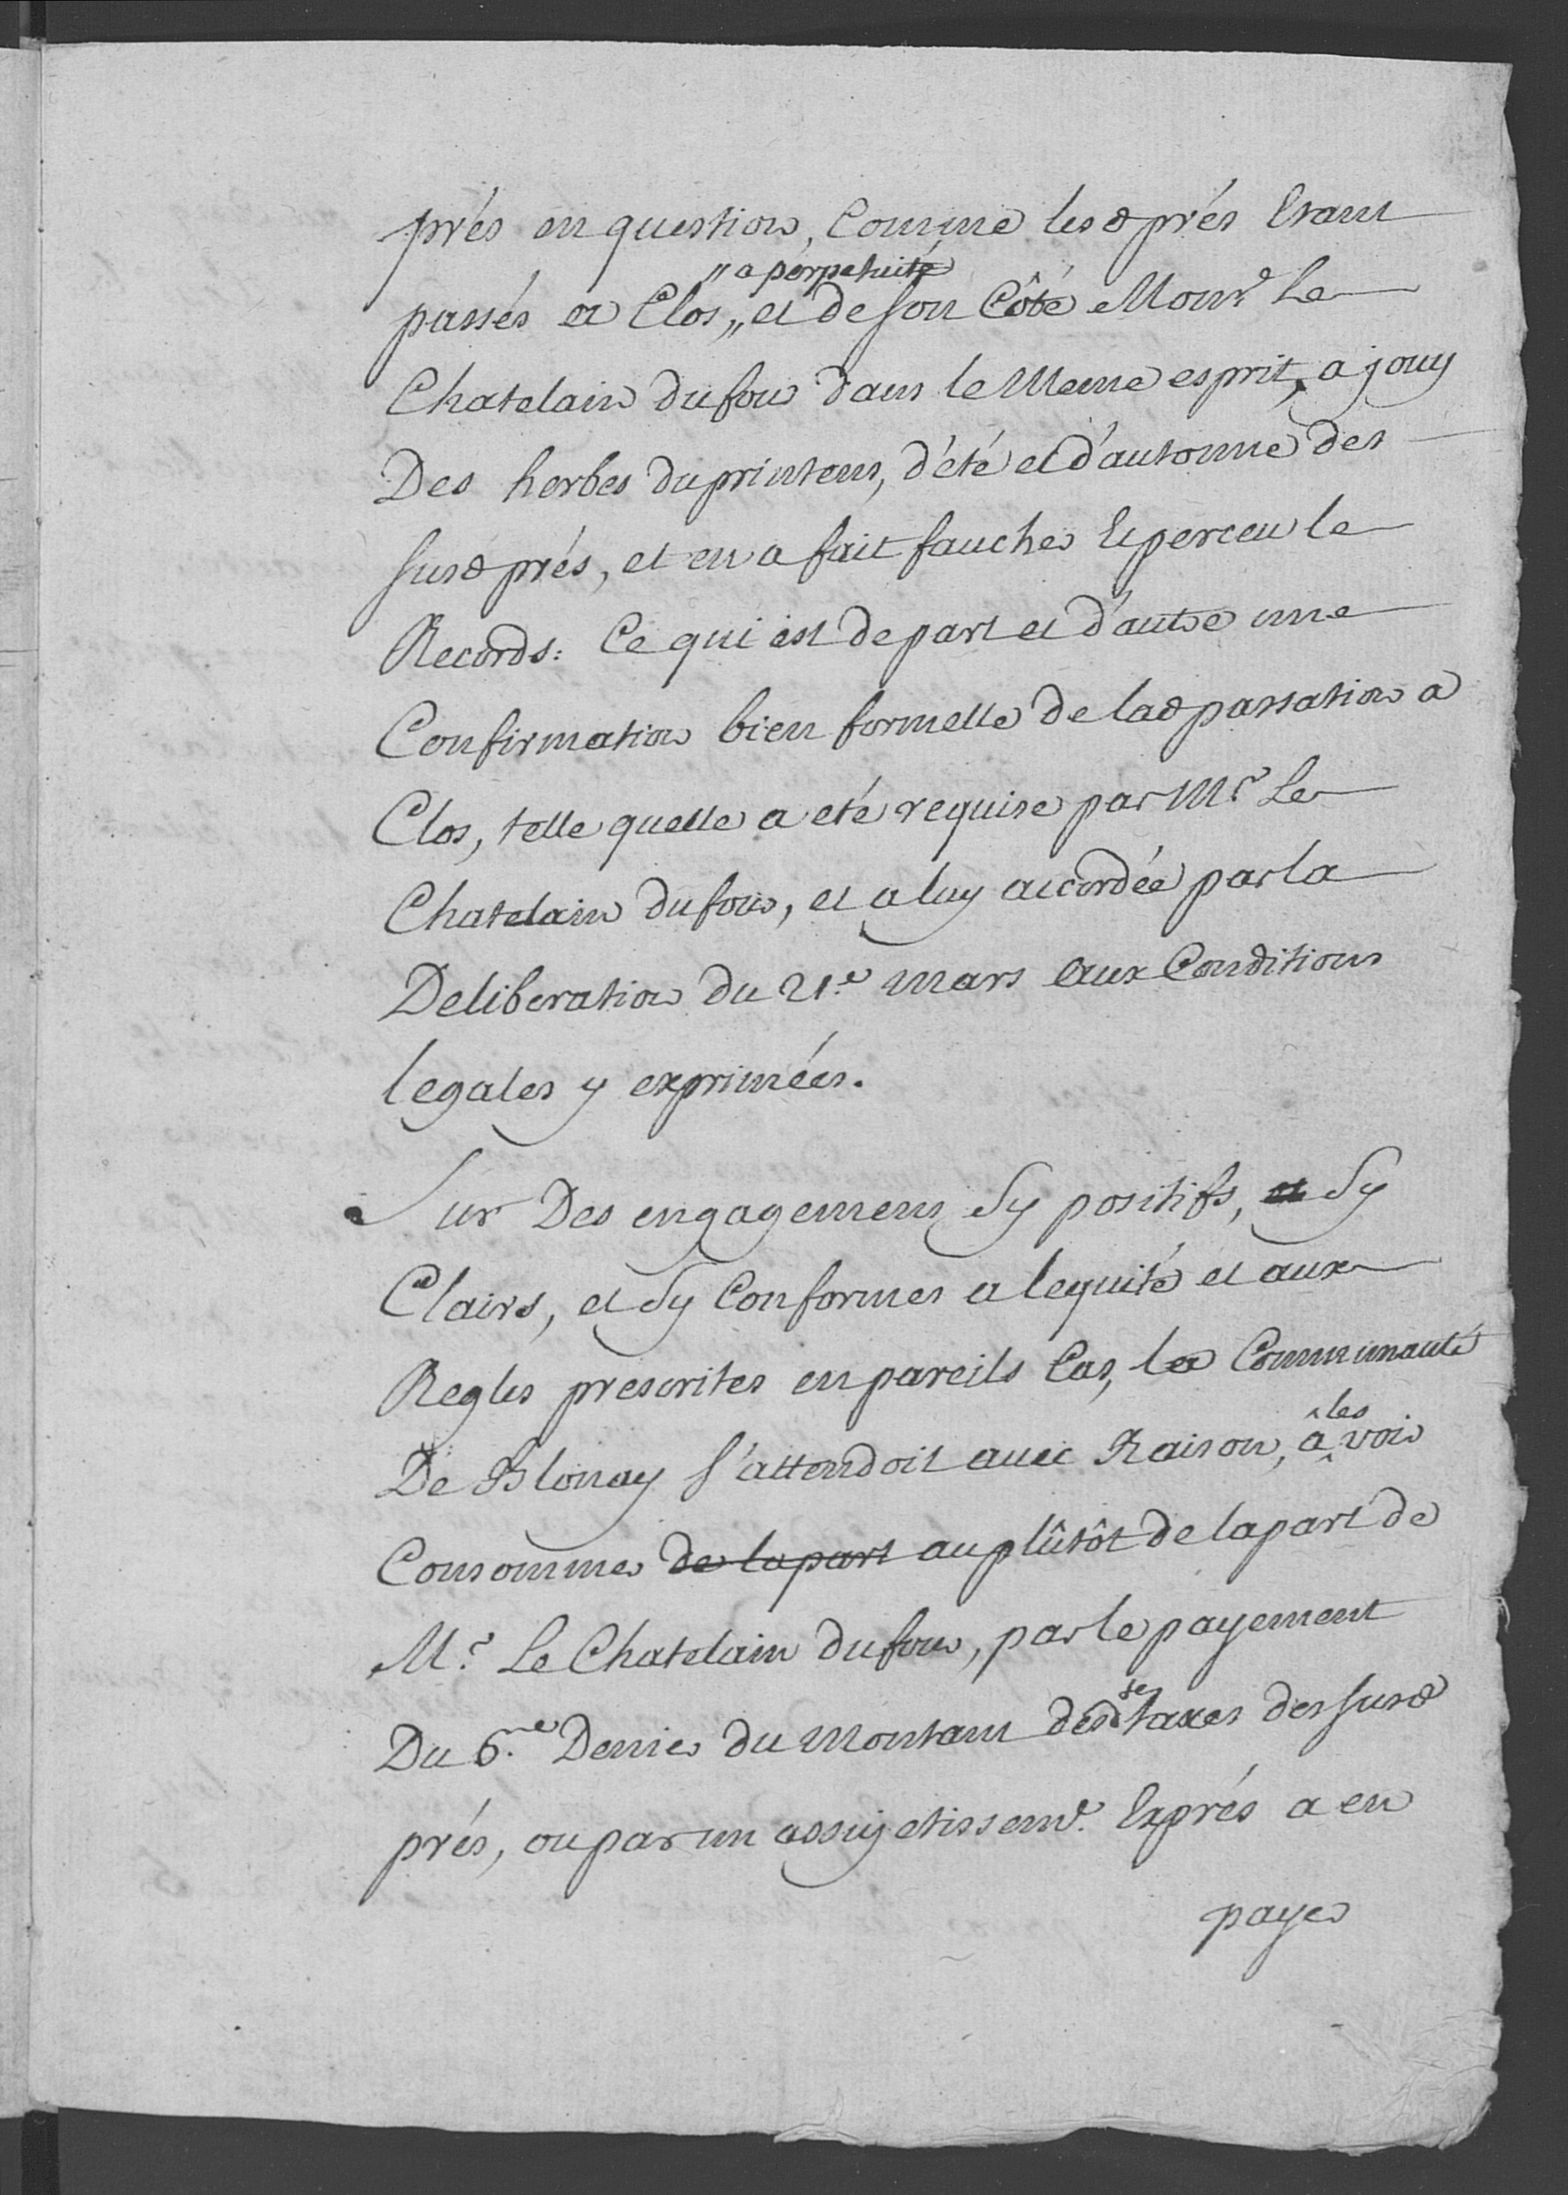 prés en question, Comme lesd prés Etant
"a pérpetuité
passés a Clos,„ et de son Côté Monr. Le
Chatelain dufour dans le Meme esprit, a jouy
Des herbes du printems, d'été et d'automne des
susd prés, et en a fait faucher Et perceu le
Records: Ce qui est de part et d'autre une
Confirmation bien formelle de lad passation a
Clos, telle quelle a eté requise par Mr. Le
Chatelain dufour, et a luy accordée par la
Deliberation du 21.e mars Aux Conditions
legales y exprimées.
Sur Des engagemens Sy positifs, et Sy
Clairs, et Sy Conformes a lequité et aux
Regles prescrites en pareils Cas, la Communauté
les
De Blonay s'attendoit avec Raison, â voir
Consommer de la part au plûtôt de la part de
M.r Le Chatelain dufour, par le payement
Du 6.me Denier du Montant desd taxes des susd
prés, ou par un assujetissemt. Exprés a en
payer